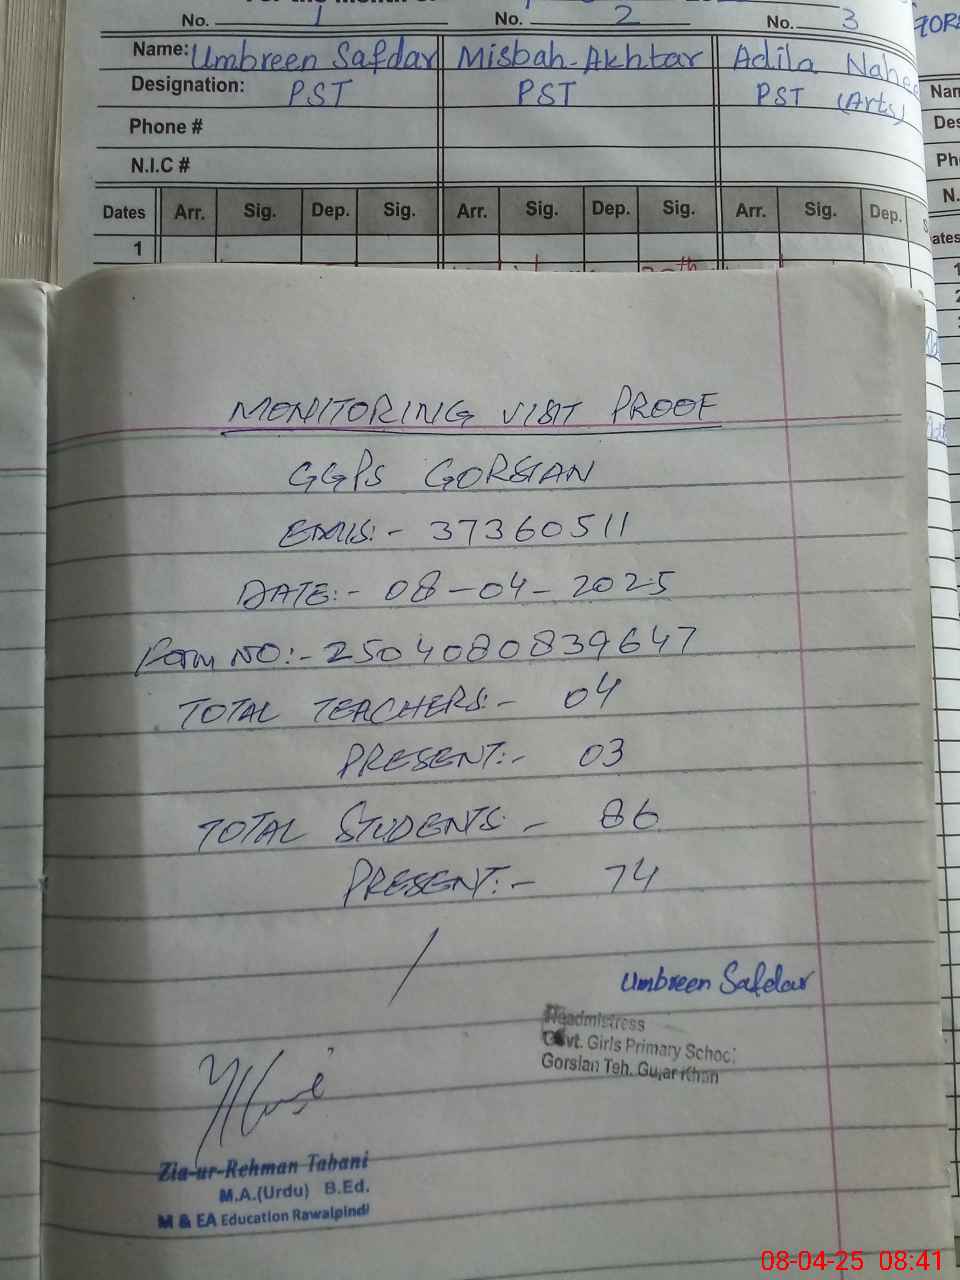 No. 1 No. 2 No. 3
Name: Umbreen Safdar Misbah Akhtar Adila
Designation: PST PST PST (Arts)
Phone #
N.I.C #
Dates Arr. Sig. Dep. Sig. Arr. Sig. Dep. Sig. Arr. Sig. Dep.
1
MONITORING VISIT PROOF
GGPS GORSIAN
EMIS:- 37360511
DATE:- 08-04-2025
Form NO:- 2504080839647
TOTAL TEACHERS:- 04
PRESENT:- 03
TOTAL STUDENTS:- 86
PRESENT:- 74
Umbreen Safdar
Headmistress
Govt. Girls Primary School
Gorsian Teh. Gujar Khan
Zia-ur-Rehman Tabani
M.A.(Urdu) B.Ed.
M & EA Education Rawalpindi
08-04-25 08:41